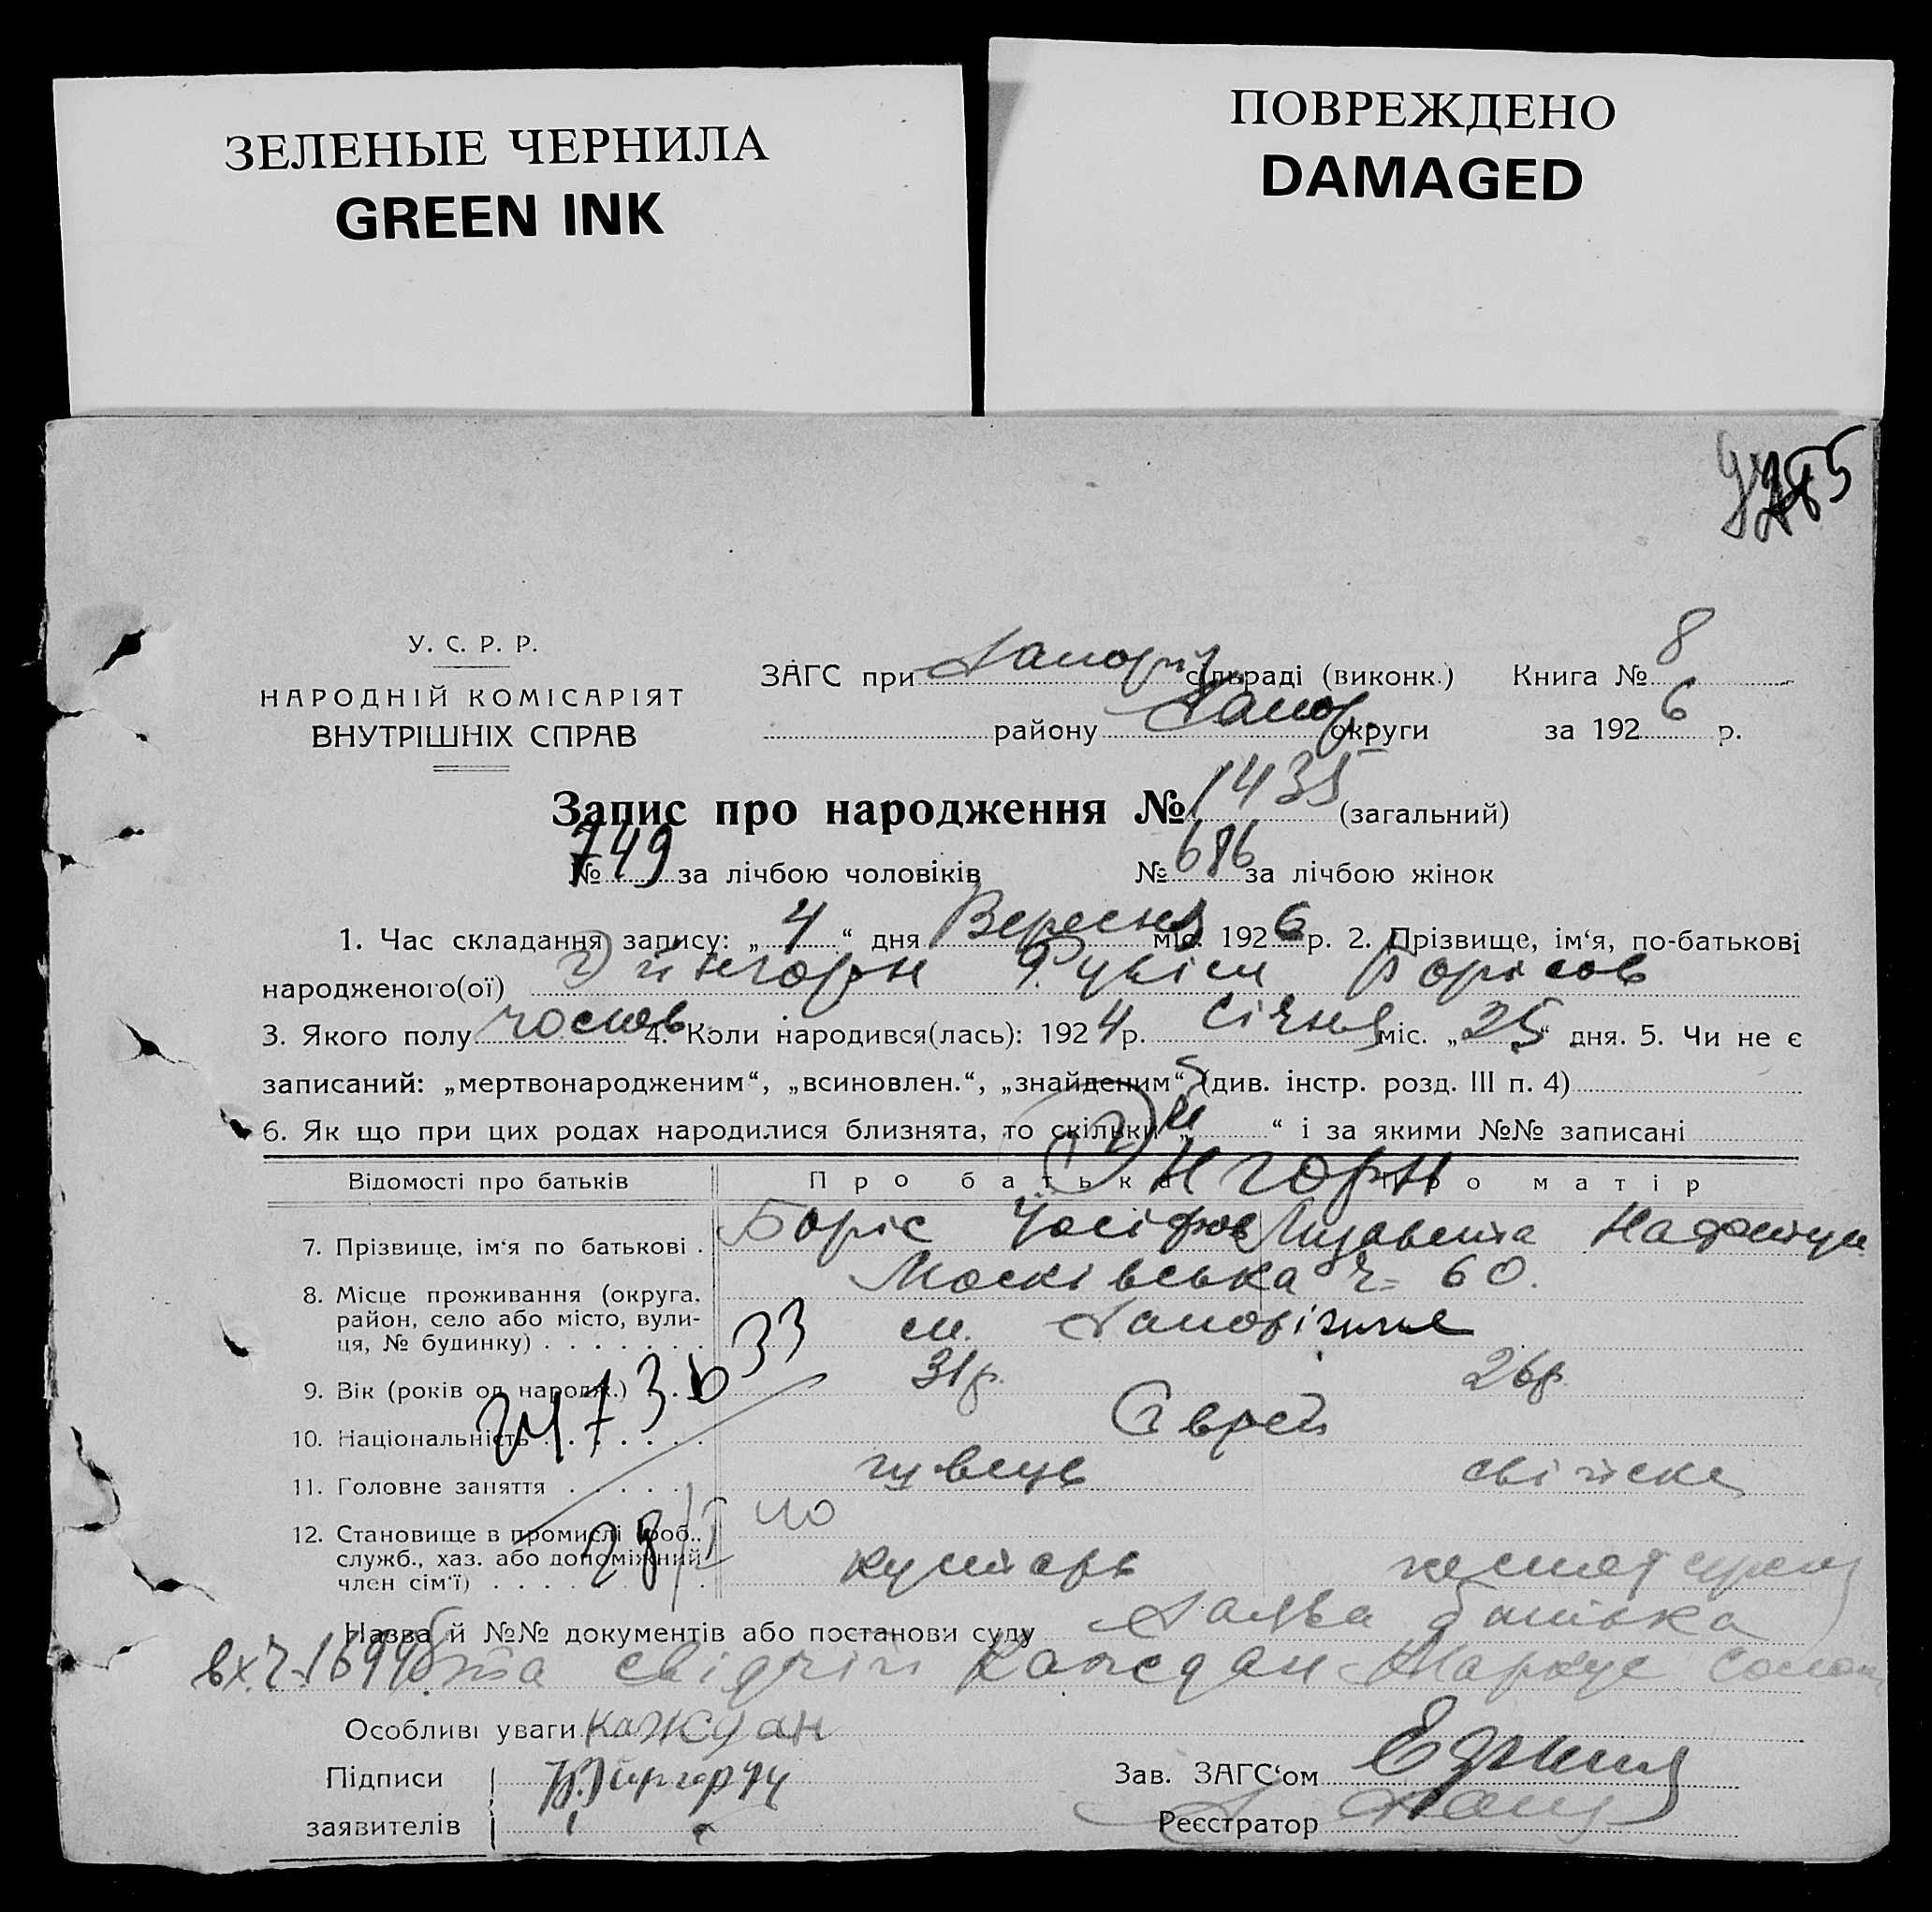 ЗЕЛЕНЫЕ ЧЕРНИЛА
GREEN INK
ПОВРЕЖДЕНО
DAMAGED
У. С. Р. Р.
НАРОДНІЙ КОМІСАРІЯТ
ВНУТРІШНІХ СПРАВ
ЗАГС при сільраді (виконк.) Книга № 8
району Запор. округи за 1926 р.
Запис про народження № 1435 (загальний)
№ 749 за лічбою чоловіків № 686 за лічбою жінок
1. Час складання запису: „ 4 “ дня Вересня міс. 1926 р. 2. Прізвище, ім‘я, по-батькові
народженого(ої) Борісов
3. Якого полу 4. Коли народився(лась): 1924 р. Січня міс. „ 25 “ дня. 5. Чи не є
записаний: „мертвонародженим“, „всиновлен.“, „знайденим“ (див. інстр. розд. III п. 4)
6. Як що при цих родах народилися близнята, то скільки „ “ і за якими №№ записані
Відомості про батьків Про батька Про матір
7. Прізвище, ім‘я по батькові . Боріс Йосіфов Лизавета
8. Місце проживання (округа, район, село або місто, вулиця, № будинку) Московська ч. 60.
м. Запоріжжє
9. Вік (років од народж.) 31 р. 26 р.
10. Національність Єврей
11. Головне заняття швець
12. Становище в промислі (роб., служб., хаз. або допоміжний член сім‘ї) кустарь
Назва й №№ документів або постанови суду Заява батька
вх. ч. та свідчій Каждан Маркус
Особливі уваги Каждан
Підписи
заявителів
Зав. ЗАГС‘ом
Реєстратор